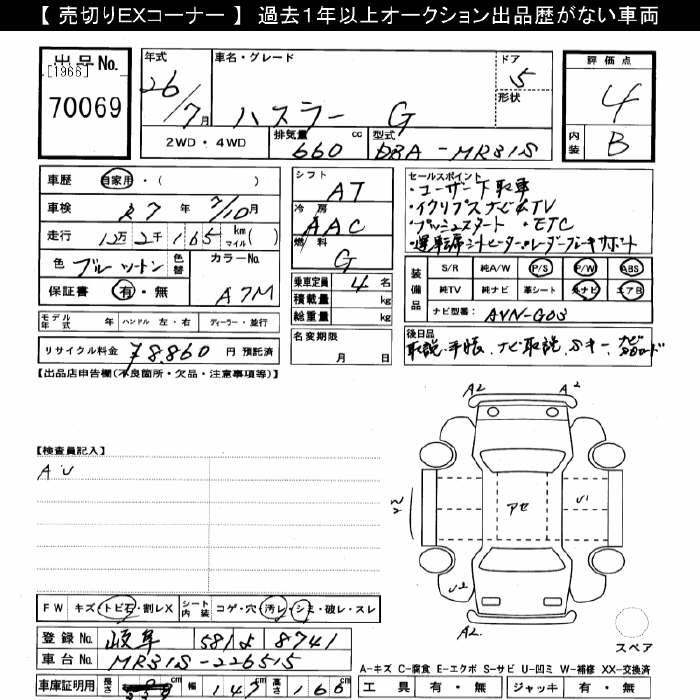 【 売切りEXコーナー 】 過去１年以上オークション出品歴がない車両
出品No.
[1966]
70069
年式
26/7月
車名・グレード
ハスラー G
ドア
5
形状
評価点
4
内装
B
2WD・4WD
排気量
660 cc
型式
DBA-MR31S
車歴
自家用・( )
車検
R7年 7/10月
走行
12万 2千 165 km マイル( )
色
ブルーツートン
色替
カラーNo.
A7M
保証書
有・無
シフト
AT
冷房
AAC
燃料
G
乗車定員 4名
積載量 kg
総重量 kg
名変期限
月 日
セールスポイント
・ユーザー下取車
・イクリプスナビ&TV
・プッシュスタート ・ETC
・運転席シートヒーター・レーダーブレーキサポート
装備品
S/R 純A/W P/S P/W ABS
純TV 純ナビ 革シート 社ナビ エアB
ナビ型番：AVN-G03
モデル年式 年 ハンドル 左・右 ディーラー・並行
リサイクル料金 ¥8860 円 預託済
後日品
取説、手帳、ナビ取説、Sキー、ナビSDカード
【出品店申告欄(不良箇所・欠品・注意事項等)】
【検査員記入】
AU
A2
A2
アセ
U1
U2
A2
スペア
FW キズ・トビ石・割レX
シート内装 コゲ・穴・汚レ・シミ・破レ・スレ
登録No. 岐阜 581 よ 8741
車台No. MR31S-226515
車庫証明用 長さ 339cm 幅 147cm 高さ 166cm
A-キズ C-腐食 E-エクボ S-サビ U-凹ミ W-補修 XX-交換済
工具 有・無 ジャッキ 有・無